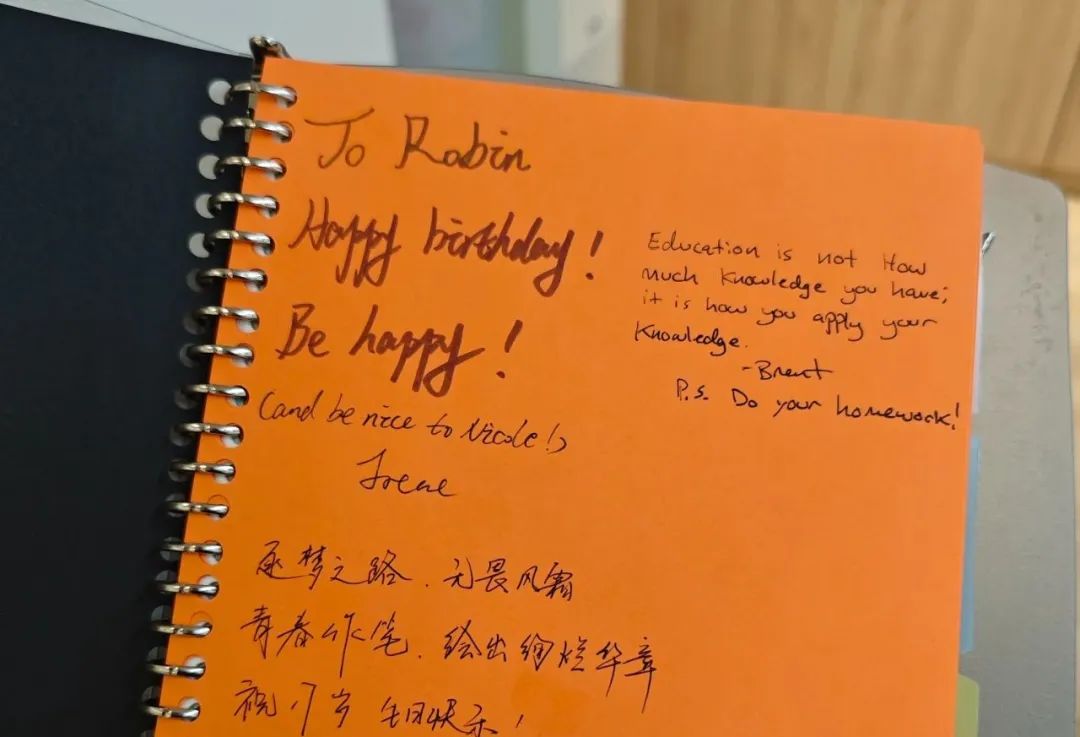 To Robin
Happy birthday!
Be happy!
(and be nice to Nicole!)
Irene
Education is not How
much Knowledge you have;
it is how you apply your
Knowledge.
-Brent
P.S. Do your homework!
逐梦之路.无畏风霜
青春作笔.绘出绚烂华章
祝17岁生日快乐!